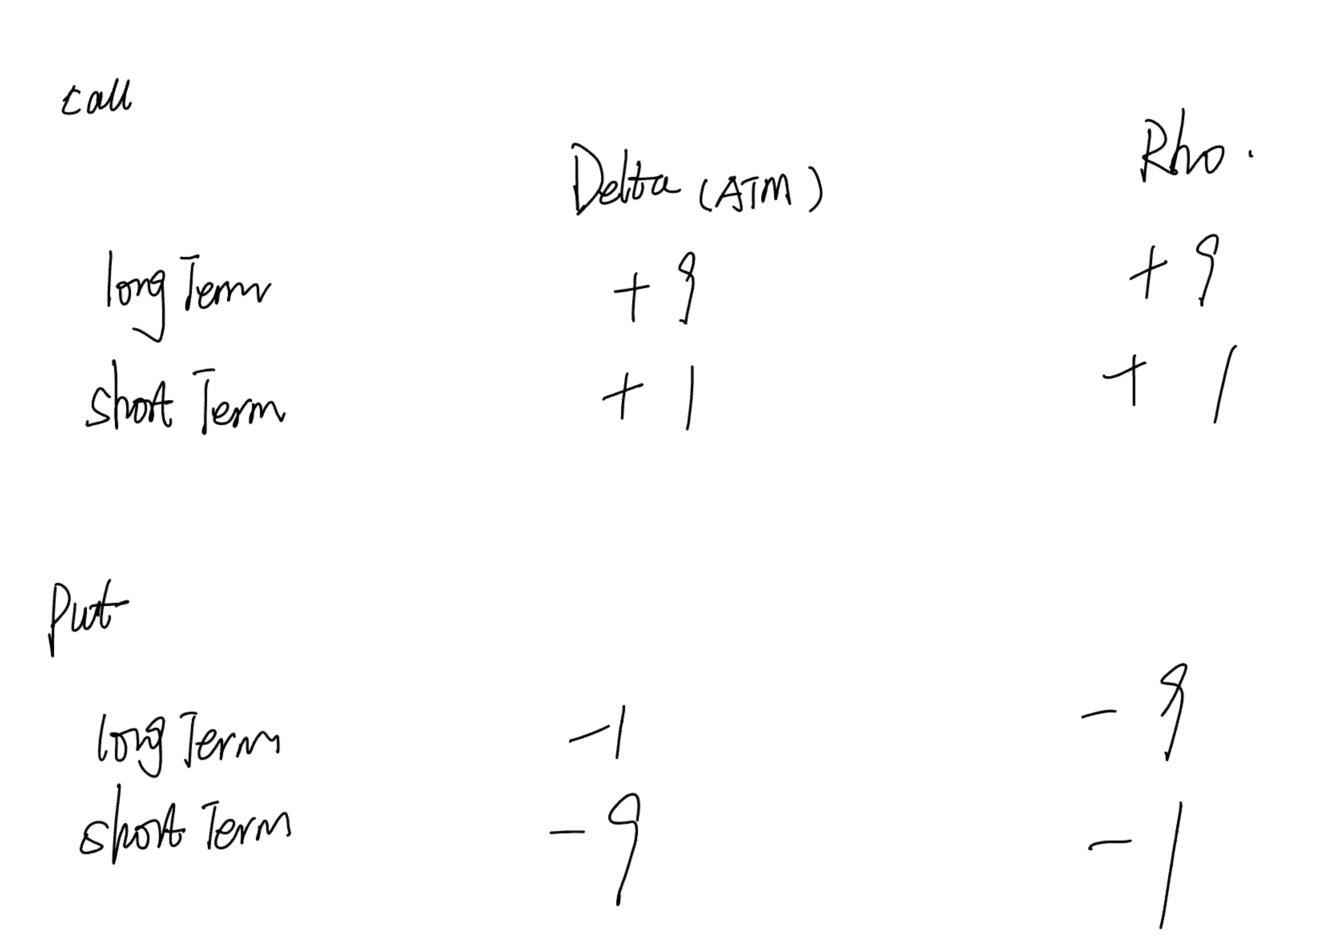 call
Delta (ATM) Rho.
long Term +9 +9
short Term +1 +1
Put
long Term -1 -9
short Term -9 -1